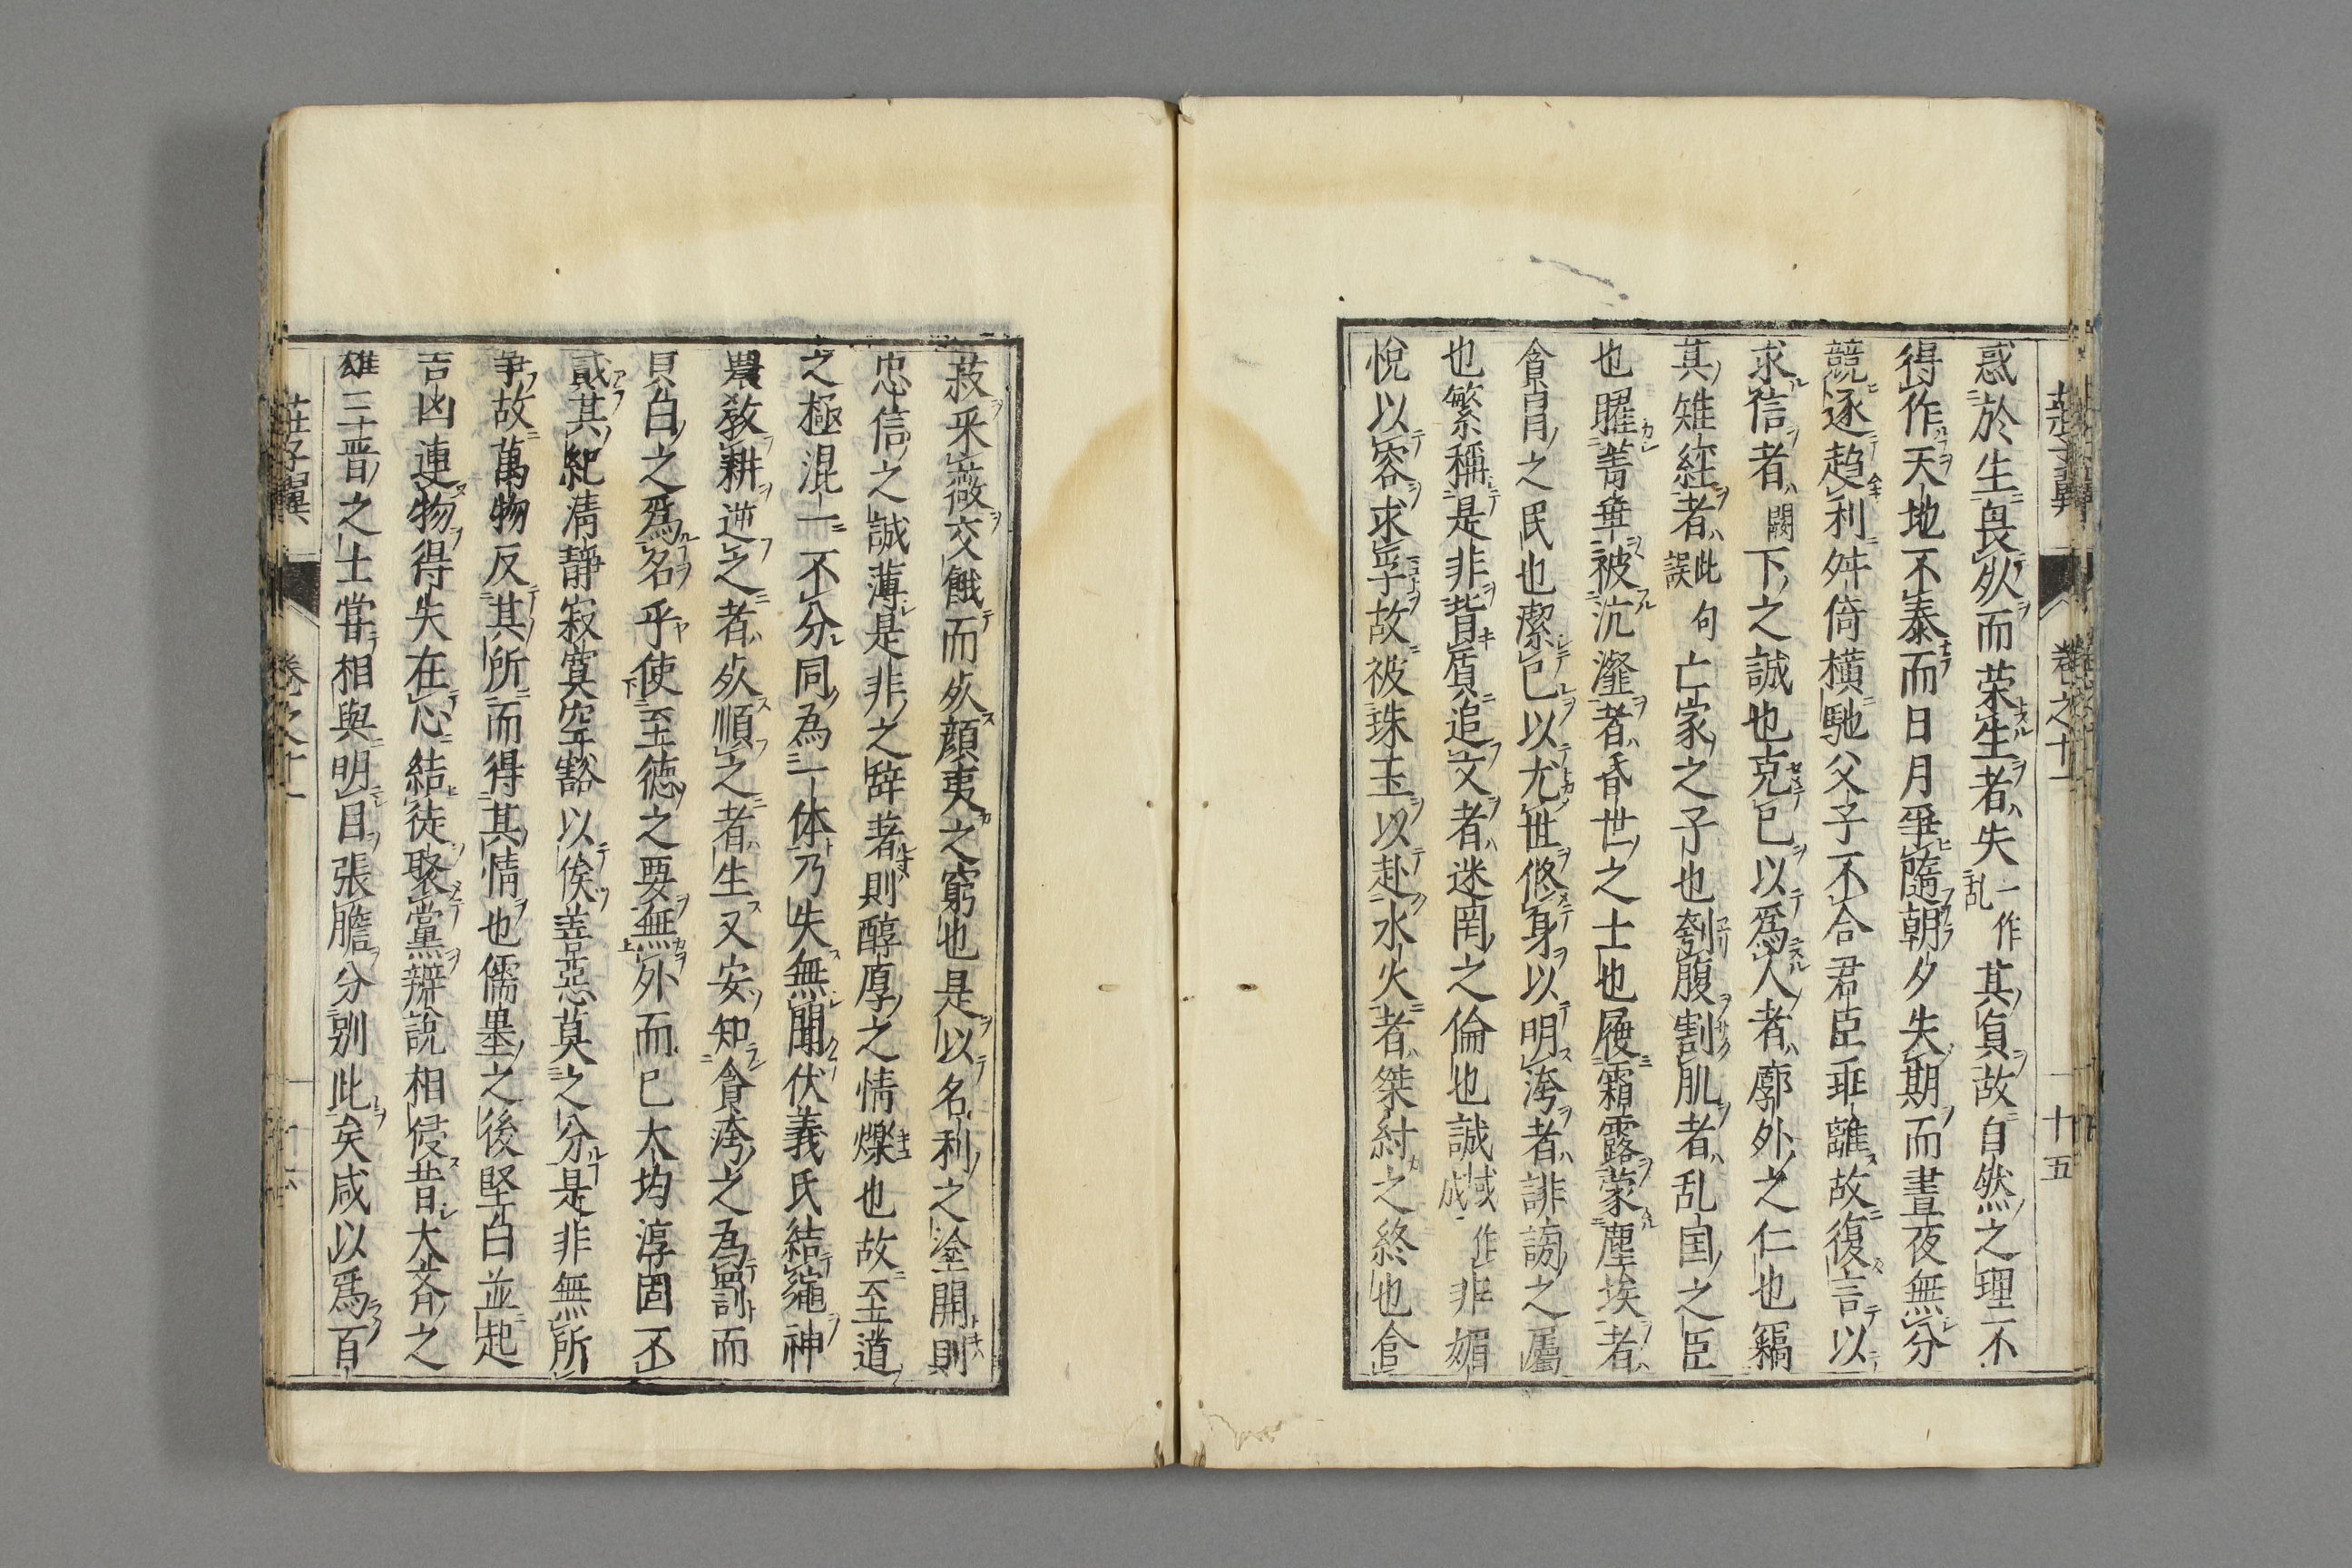 莊子翼 卷之十一 十五
惑於生畏死而荣生者失一作乱其貞故自然之理不
得作天地不泰而日月爭隨朝夕失期而晝夜無分
競逐趋利舛倚橫馳父子不合君臣乖離故復言以
求信者闕下之誠也克已以爲人者廓外之仁也竊
其雉経者此句誤亡家之子也刳腹割肌者乱国之臣
也曜菁華被沆瀣者昏世之士也履霜露蒙塵埃者
貪冐之民也潔已以尤世修身以明洿者誹謗之屬
也繁稱是非背質追文者迷罔之倫也誠域作成非媚
悅以容求孚故被珠玉以赴水火者桀紂之終也含
菽采薇交餓而死顔夷之窮也是以名利之塗開則
忠信之誠薄是非之辞者則醇厚之情爍也故至道
之極混一不分同為一体乃失無聞伏義氏結繩神
農教耕逆之者死順之者生又安知貪洿之為罰而
貝白之爲名乎使至徳之要無外而已大均淳固不
貳其紀清静寂寞空豁以俟善惡莫之分是非無所
争故萬物反其所而得其情也儒墨之後堅白並起
吉凶連物得失在心結徒聚黨辯說相侵昔大齊之
雄三晋之士嘗相與明目張膽分别此矣咸以爲百
莊子翼 卷之十一 十六